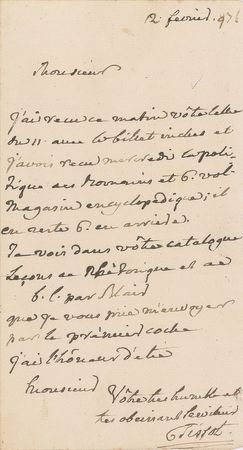 12 fevried. 97
Monsieur
j'ai recu ce matin vôtre lettre
du 11. avec le billet inclus et
j'avois recu mercredi la poli-
tique des Romains et 6. vol
Magasin encyclopedique; il
en reste 6. en arriere.
Je vois dans vôtre catalogue
Leçons de Rhétorique et de
b. l. par Blair
que je vous prie m'envoyer
par le prémier coche
j'ai l'hôneur d'etre
Monsieur
Vôtre tres humble et
tres obeissant serviteur
Tissot